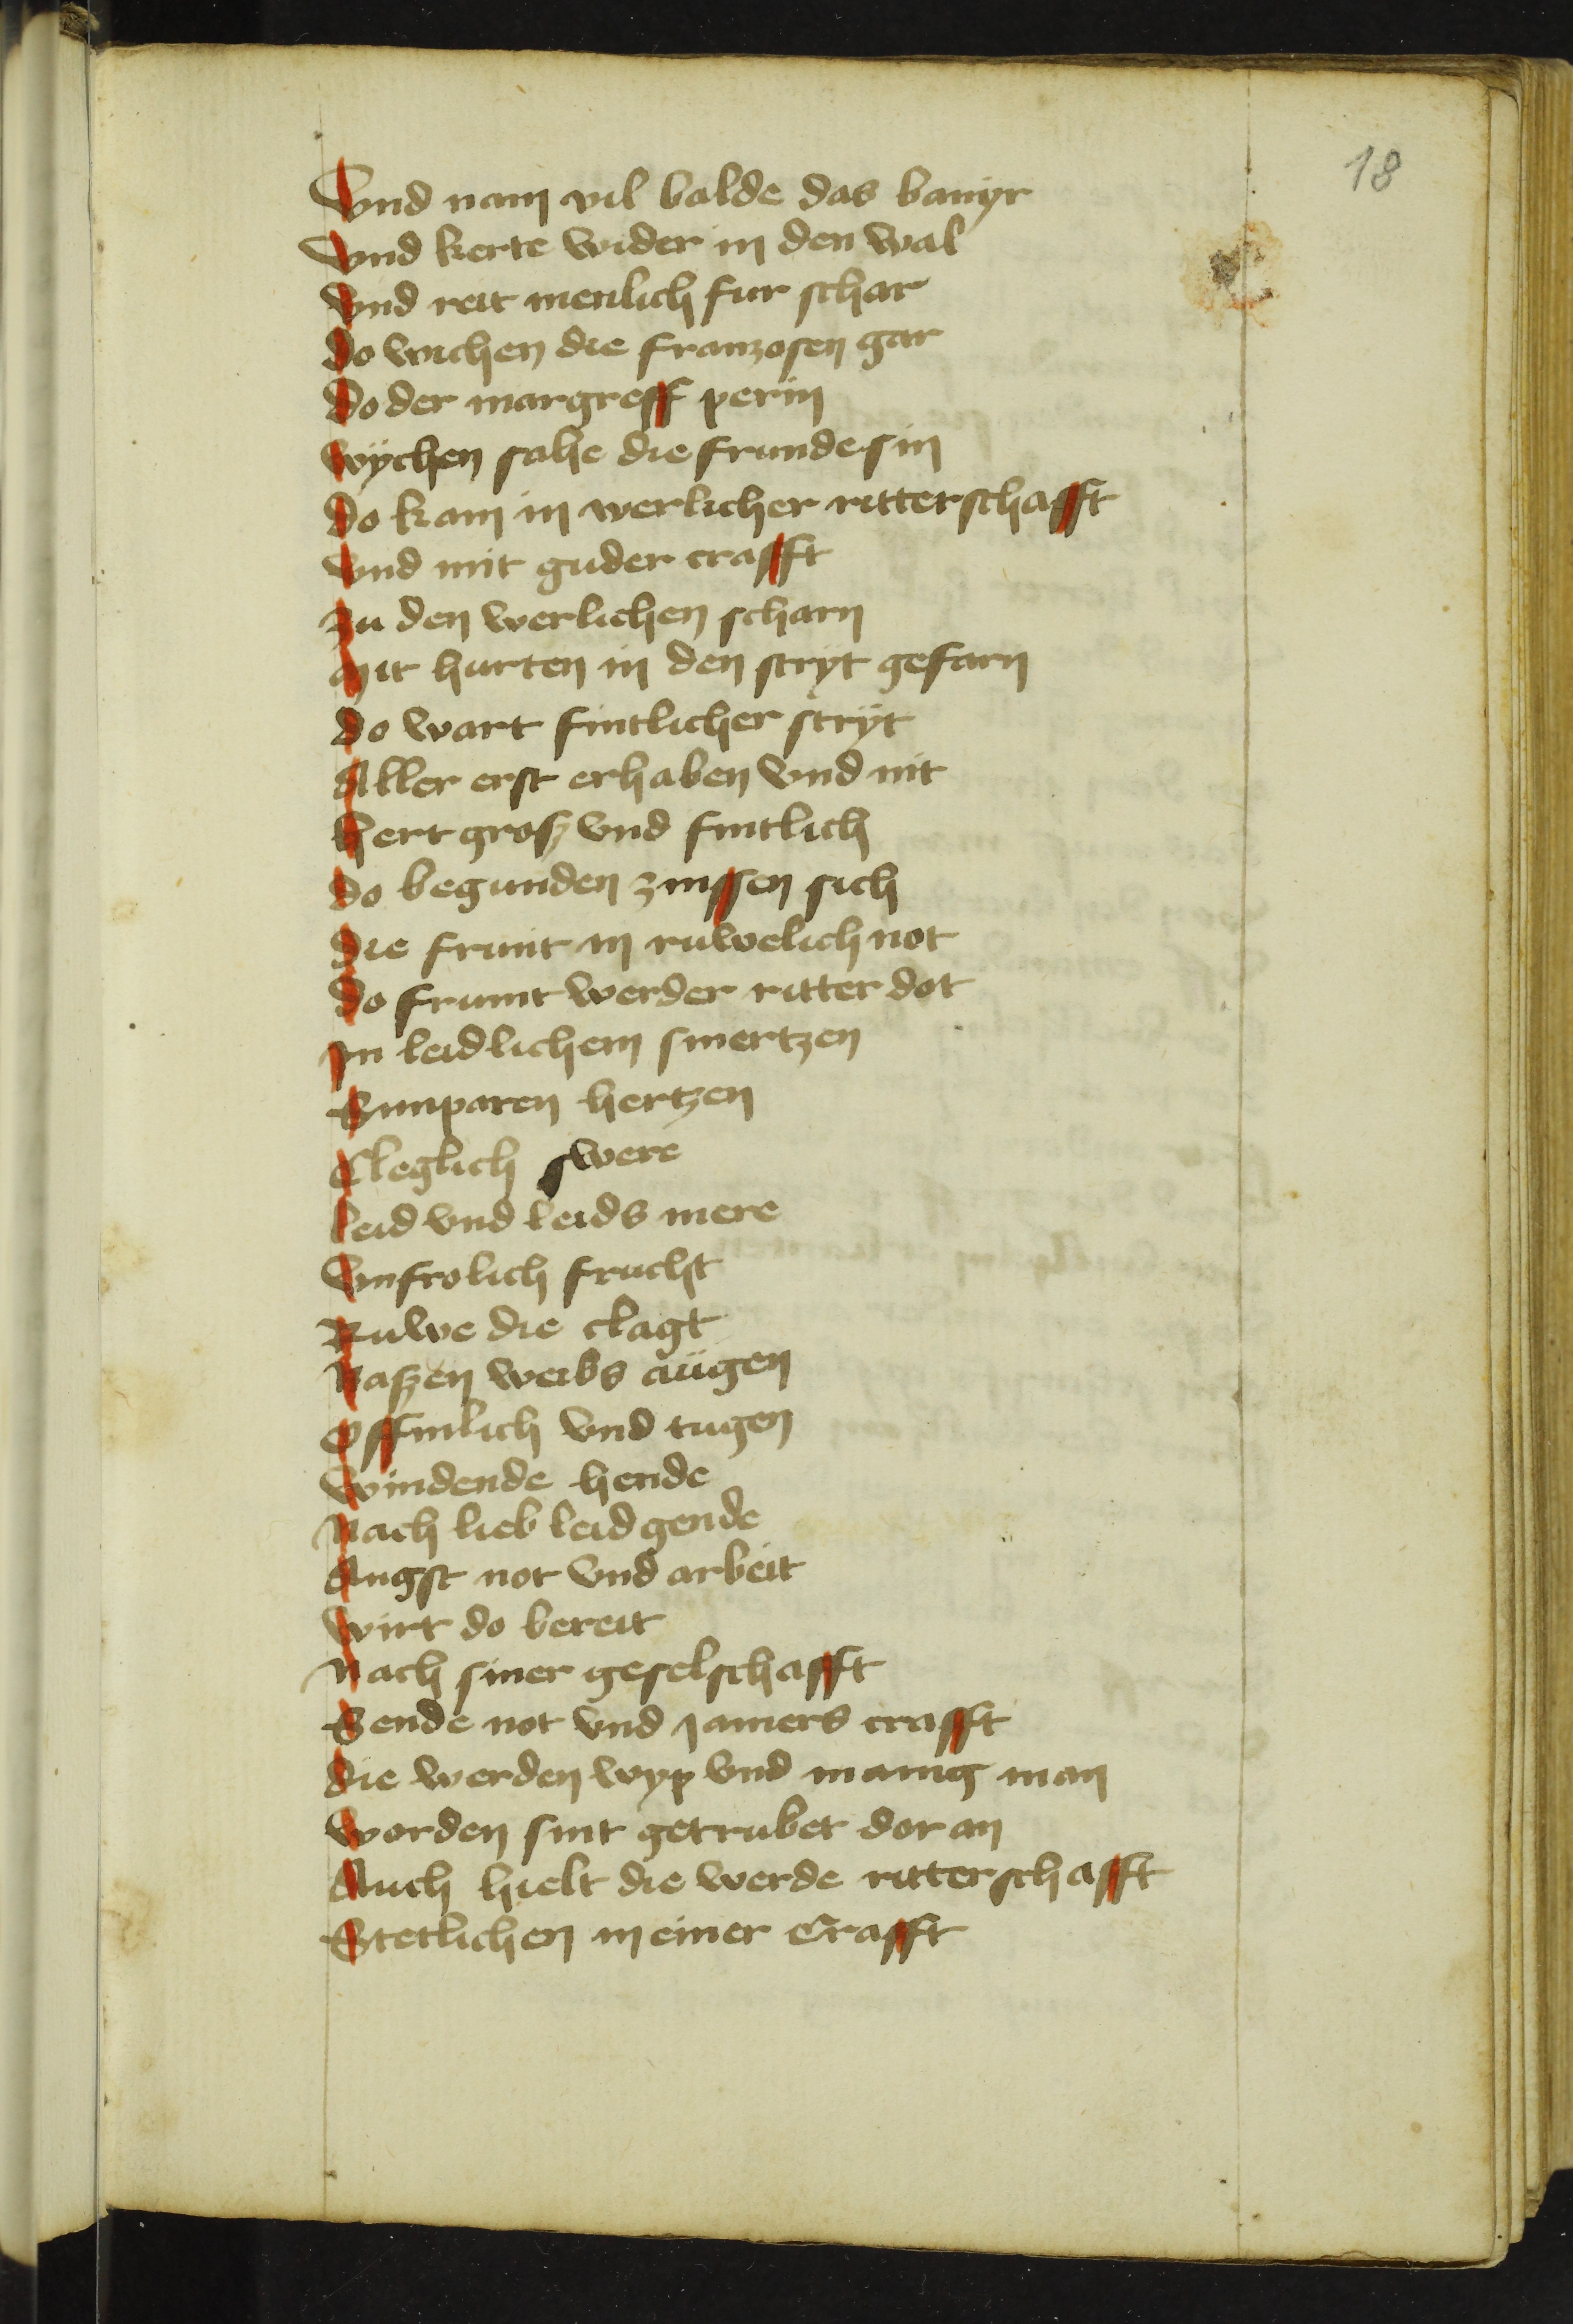 18
Vnd nam vil balde das banyr
Vnd kerte wider in den wal
Vnd reit menlich fur schar
do wichen die franzosen gar
do der margreff perin
wÿchen sahe die frunde sin
do kam in werlicher ritterschafft
Vnd mit guder crafft
Zu den werlichen scharn
Mit hurten in den stryt gefarn
do wart fintlicher strÿt
Aller erst erhaben vnd nit
Hert grosz vnd fintlich
do begunden zwissen sich
die frunt in ruwelich not
do frumt werder ritter dot
In leidlichem smertzen
Sunparen hertzen
Cleglich swere
leid vnd leids mere
Vnfrolich frucht
Ruwe die clagt
Naszen weibs augen
Offinlich vnd tugen
Windende hende
Nach lieb leid gende
Angst not vnd arbeit
Wirt do bereit
Nach siner geselschafft
Sende not vnd jamers crafft
die werden wyp vnd manig man
Worden sint getrubet dor an
Auch hielt die werde ritterschafft
Stetlichen in einer Crafft